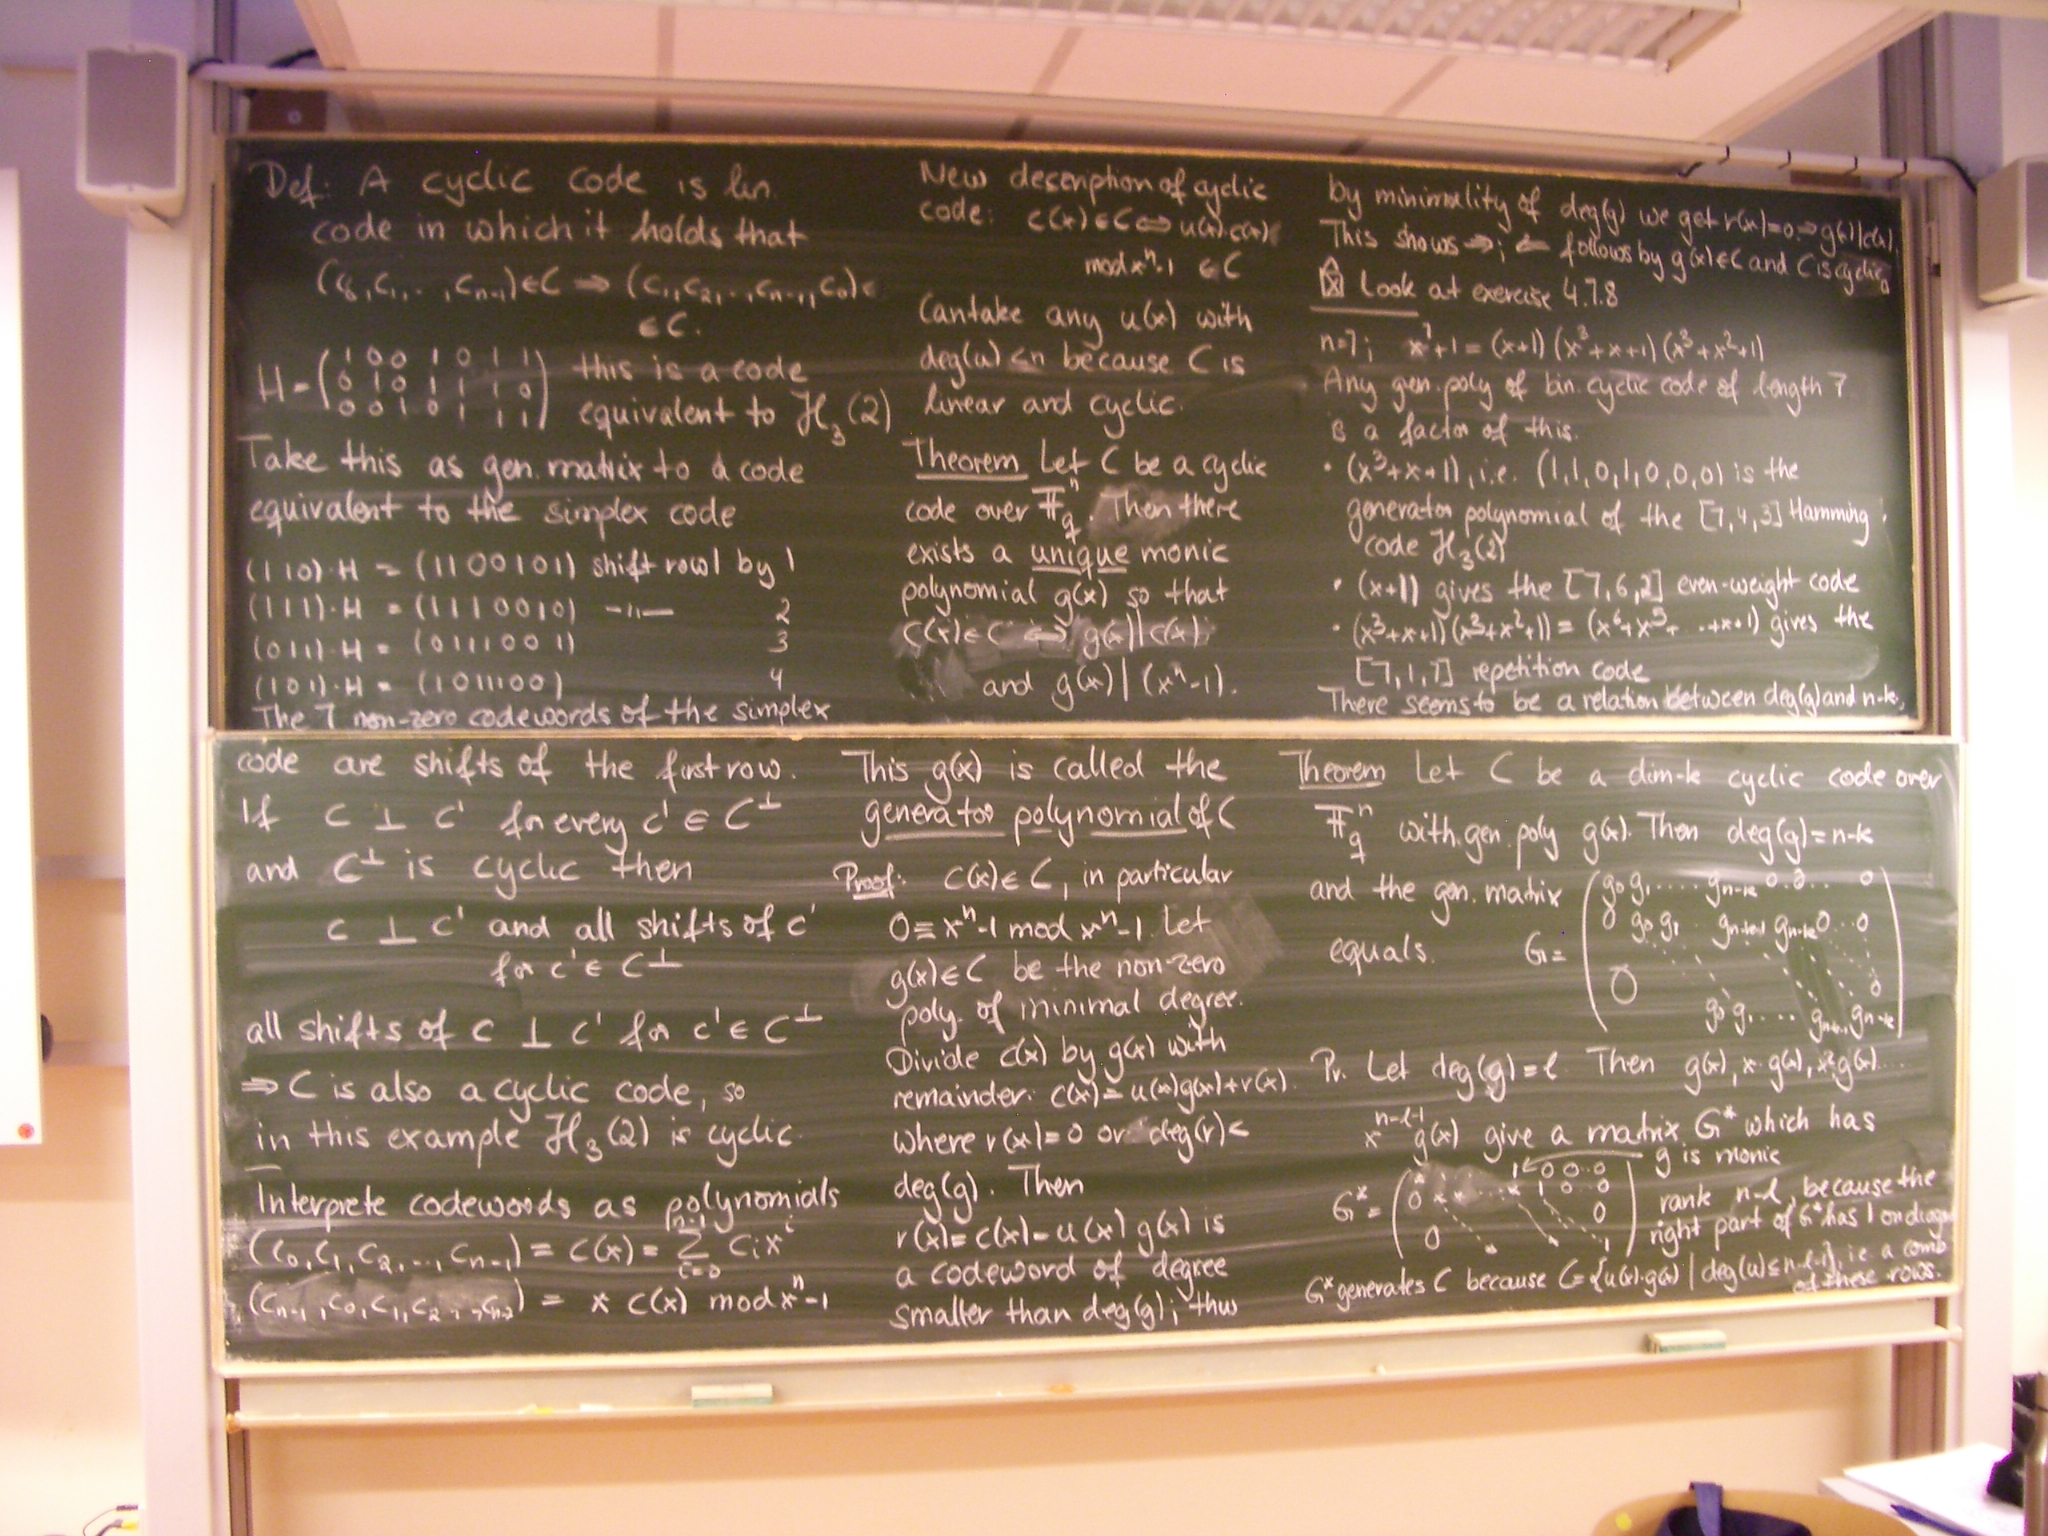 Def: A cyclic code is lin.
code in which it holds that
(c₀,c₁,..,cₙ₋₁)∈C ⇒ (c₁,c₂,..,cₙ₋₁,c₀)∈
∈C.
H = (1 0 0 1 0 1 1
0 1 0 1 1 1 0
0 0 1 0 1 1 1) this is a code
equivalent to ℋ₃(2)
Take this as gen. matrix to a code
equivalent to the simplex code
(1 1 0)·H = (1100101) shift row 1 by 1
(1 1 1)·H = (1110010) -"- 2
(0 1 1)·H = (0111001) 3
(1 0 1)·H = (1011100) 4
The 7 non-zero codewords of the simplex
code are shifts of the first row.
If c ⊥ c' for every c' ∈ C^⊥
and C^⊥ is cyclic then
c ⊥ c' and all shifts of c'
for c' ∈ C^⊥
all shifts of c ⊥ c' for c' ∈ C^⊥
⇒ C is also a cyclic code, so
in this example ℋ₃(2) is cyclic.
Interprete codewords as polynomials
(c₀,c₁,c₂,...,cₙ₋₁) = c(x) = Σ_{i=0}^{n-1} cᵢxⁱ
(cₙ₋₁,c₀,c₁,c₂..,cₙ₋₂) = x c(x) mod xⁿ-1
New description of cyclic
code: c(x)∈C ⇔ u(x)·c(x)
mod xⁿ-1 ∈ C
Can take any u(x) with
deg(u)<n because C is
linear and cyclic.
Theorem Let C be a cyclic
code over 𝔽_q^n. Then there
exists a unique monic
polynomial g(x) so that
c(x)∈C ⇔ g(x)|c(x)
and g(x)|(xⁿ-1).
This g(x) is called the
generator polynomial of C
Proof: c(x)∈C, in particular
0≡xⁿ-1 mod xⁿ-1. Let
g(x)∈C be the non-zero
poly. of minimal degree.
Divide c(x) by g(x) with
remainder: c(x)=u(x)g(x)+r(x).
where r(x)=0 or deg(r)<
deg(g). Then
r(x)=c(x)-u(x)g(x) is
a codeword of degree
smaller than deg(g); thus
by minimality of deg(g) we get r(x)=0.⇒g(x)|c(x).
This shows ⇒; ⇐ follows by g(x)∈C and C is cyclic
Look at exercise 4.7.8
n=7; x⁷+1 = (x+1)(x³+x+1)(x³+x²+1)
Any gen. poly of bin. cyclic code of length 7
is a factor of this.
• (x³+x+1), i.e. (1,1,0,1,0,0,0) is the
generator polynomial of the [7,4,3] Hamming
code ℋ₃(2)
• (x+1) gives the [7,6,2] even-weight code
• (x³+x+1)(x³+x²+1) = (x⁶+x⁵+ ..+x+1) gives the
[7,1,7] repetition code
There seems to be a relation between deg(g) and n-k.
Theorem Let C be a dim-k cyclic code over
𝔽_q^n with gen. poly g(x). Then deg(g)=n-k
and the gen. matrix
equals. G = (g₀ g₁ .... gₙ₋ₖ 0 0 .. 0
0 g₀ g₁ .. gₙ₋ₖ₋₁ gₙ₋ₖ 0 .. 0
0 0
g₀ g₁ .... gₙ₋ₖ₋₁ gₙ₋ₖ)
Pr. Let deg(g)=ℓ. Then g(x), x·g(x), x²g(x)....
x^{n-ℓ-1} g(x) give a matrix G* which has
g is monic
G* = (* .... 1 0 0..0
0 * * .... * 1 0 0
0
0 1) rank n-ℓ, because the
right part of G* has 1 on diagon
G* generates C because C={u(x)·g(x) | deg(u)≤n-ℓ-1}, i.e. a comb
of these rows.